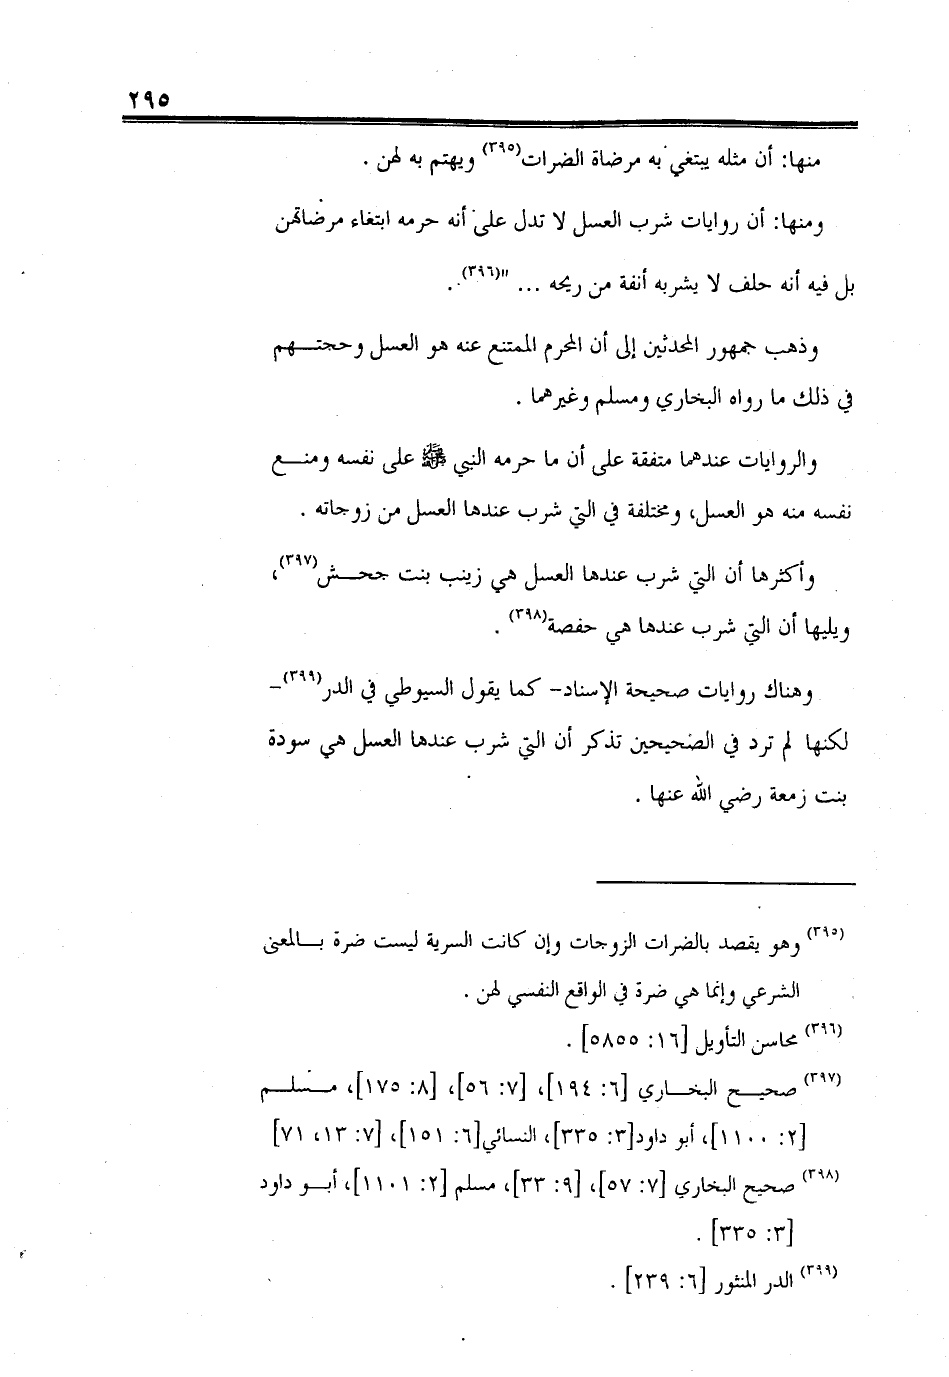 ٢٩٥
منها: أن مثله يبتغي به مرضاة الضرات(٣٩٥) ويهتم به لهن .
ومنها: أن روايات شرب العسل لا تدل على أنه حرمه ابتغاء مرضاتهن
بل فيه أنه حلف لا يشربه أنفة من ريحه ... "(٣٩٦).
وذهب جمهور المحدثين إلى أن المحرم الممتنع عنه هو العسل وحجتـــهم
في ذلك ما رواه البخاري ومسلم وغيرهما .
والروايات عندهما متفقة على أن ما حرمه النبي ﷺ على نفسه ومنـــع
نفسه منه هو العسل، ومختلفة في التي شرب عندها العسل من زوجاته .
وأكثرها أن التي شرب عندها العسل هي زينب بنت جحـــش(٣٩٧)،
ويليها أن التي شرب عندها هي حفصة(٣٩٨) .
وهناك روايات صحيحة الإسناد– كما يقول السيوطي في الدر(٣٩٩)–
لكنها لم ترد في الصحيحين تذكر أن التي شرب عندها العسل هي سودة
بنت زمعة رضي الله عنها .
(٣٩٥) وهو يقصد بالضرات الزوجات وإن كانت السرية ليست ضرة بـــالمعنى
الشرعي وإنما هي ضرة في الواقع النفسي لهن .
(٣٩٦) محاسن التأويل [١٦: ٥٨٥٥] .
(٣٩٧) صحيـــح البخـــاري [٦: ١٩٤]، [٧: ٥٦]، [٨: ١٧٥]، مـــسلـــم
[٢: ١١٠٠]، أبو داود[٣: ٣٣٥]، النسائي[٦: ١٥١]، [٧: ١٣، ٧١]
(٣٩٨) صحيح البخاري [٧: ٥٧]، [٩: ٣٣]، مسلم [٢: ١١٠١]، أبـــو داود
[٣: ٣٣٥] .
(٣٩٩) الدر المنثور [٦: ٢٣٩] .